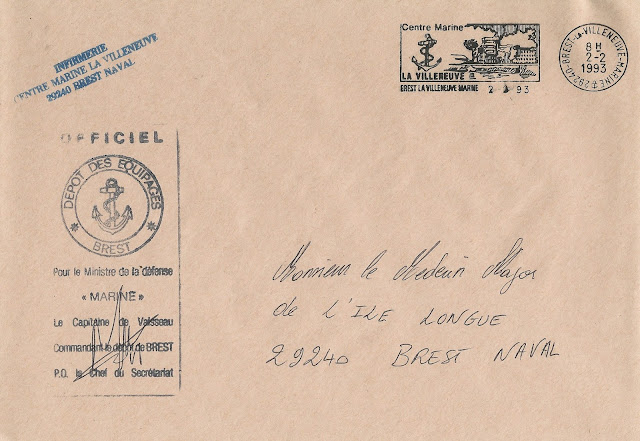 INFIRMERIE
CENTRE MARINE LA VILLENEUVE
29240 BREST NAVAL
Centre Marine
LA VILLENEUVE
BREST LA VILLENEUVE MARINE 2 2 93
29240-BREST-LA-VILLENEUVE-MARINE
8 H
2-2
1993
OFFICIEL
DEPOT DES EQUIPAGES
BREST
Pour le Ministre de la défense
« MARINE »
Le Capitaine de Vaisseau
Commandant le dépôt de BREST
P.O. le Chef du Secrétariat
Monsieur le Medecin Major
de L'ILE LONGUE
29240 BREST NAVAL